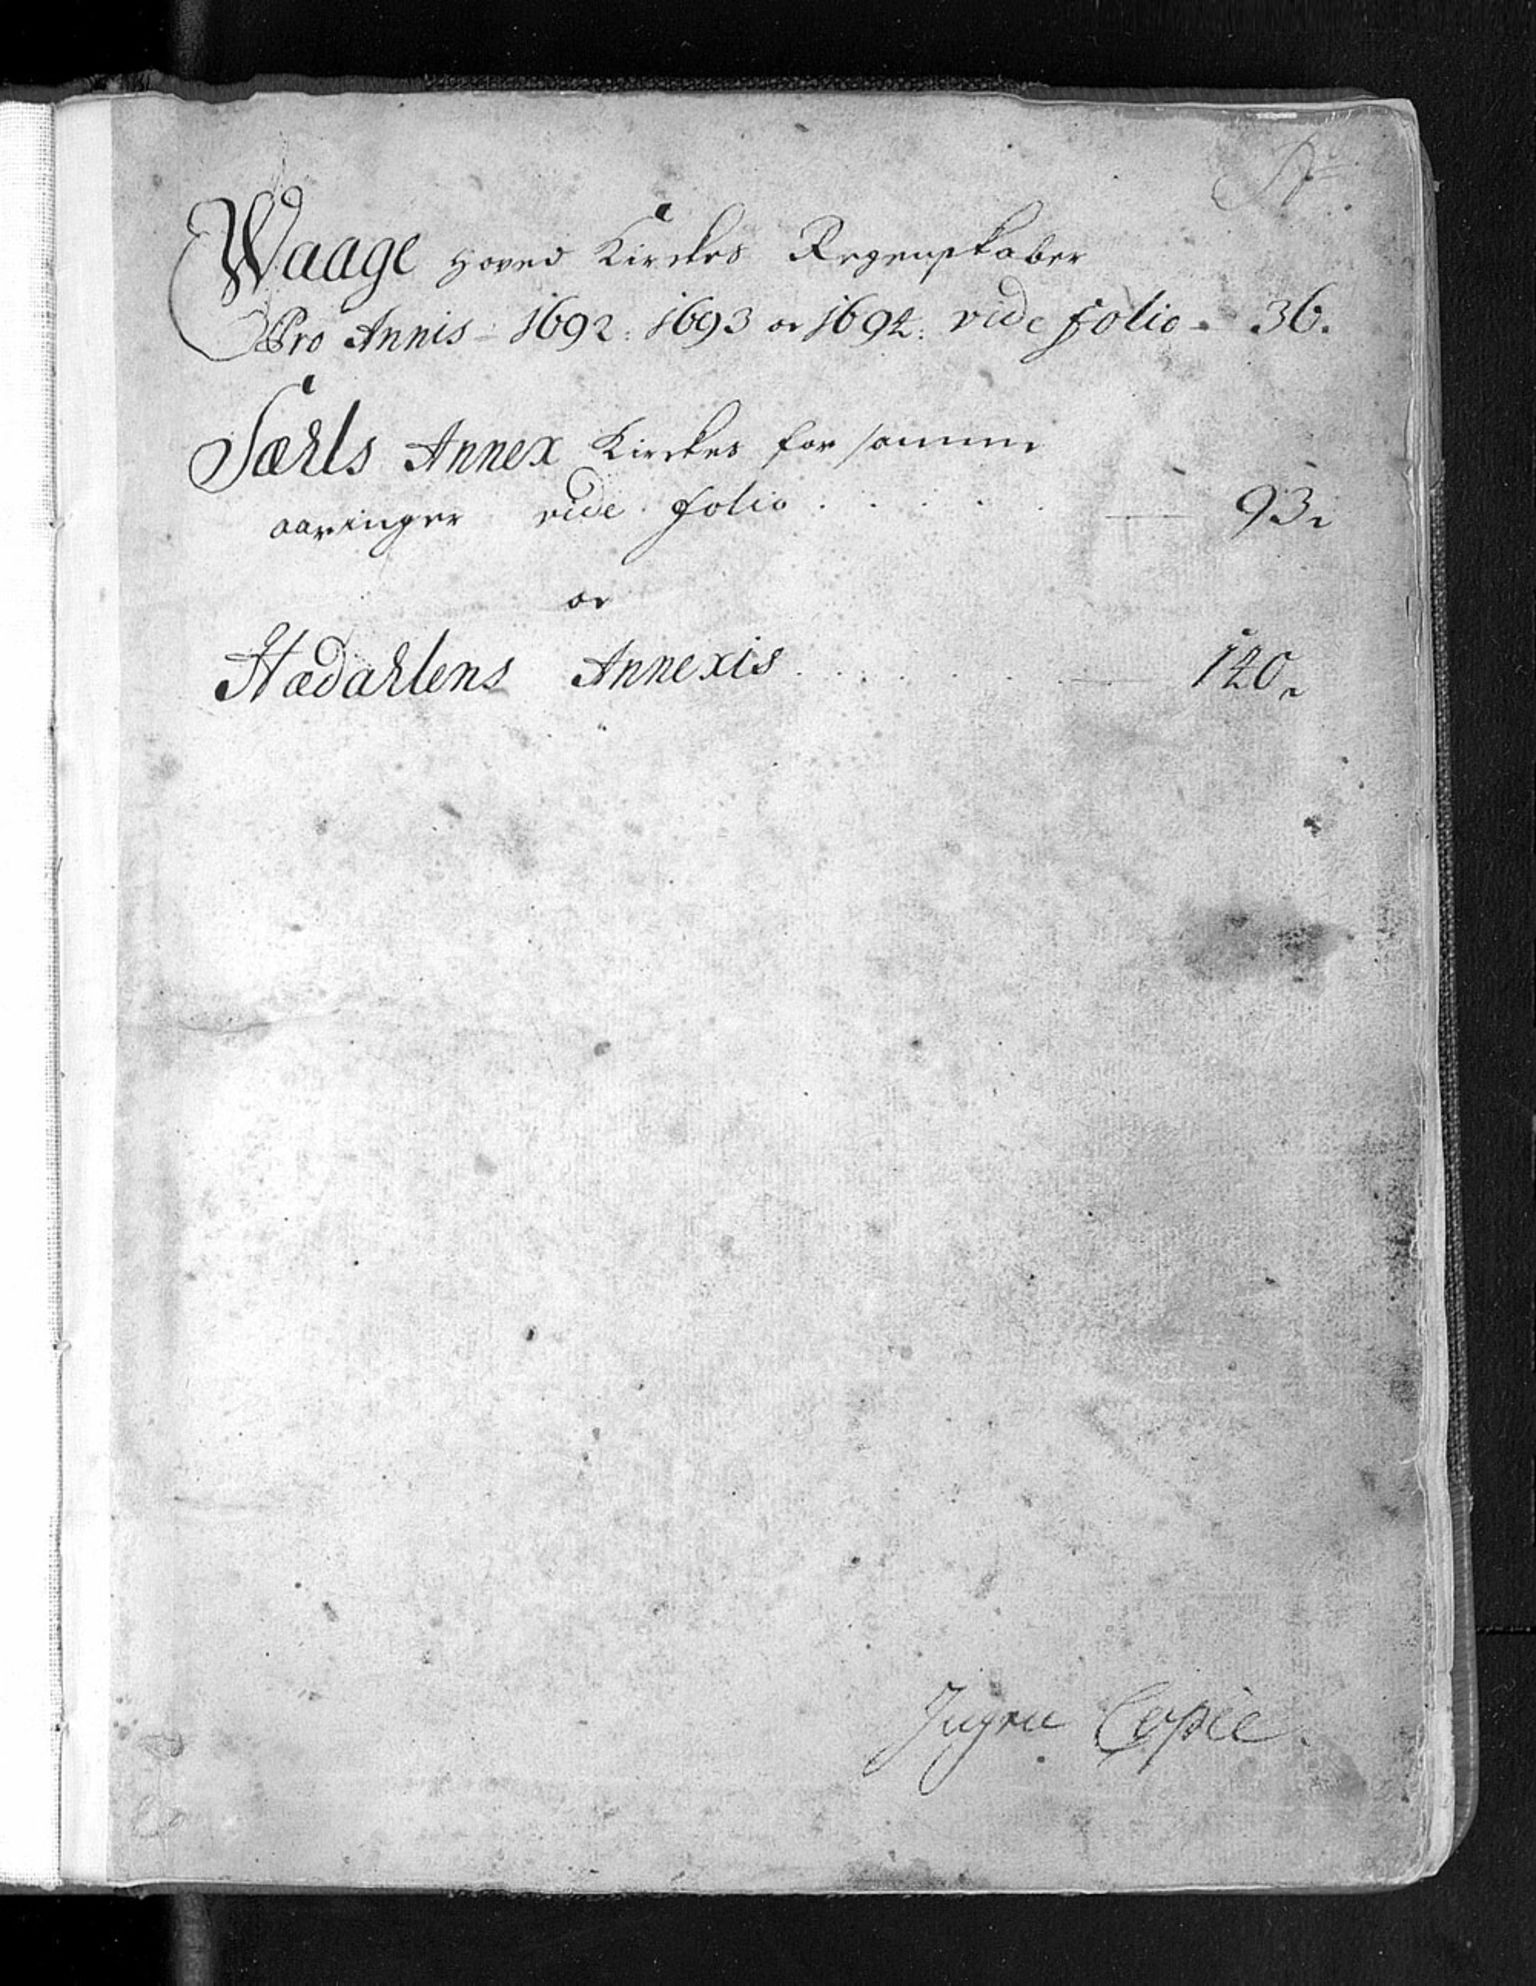 Waage Hoved Kirckes Regenskaber
Pro Annis 1692: 1693 oc 1694: vide folio 36.
Særls Annex Kirckes for samme
aaringer vide folio . . . . . 93.
oc
Hædahlens Annexis . . . . . 140.
Ingen Copie.